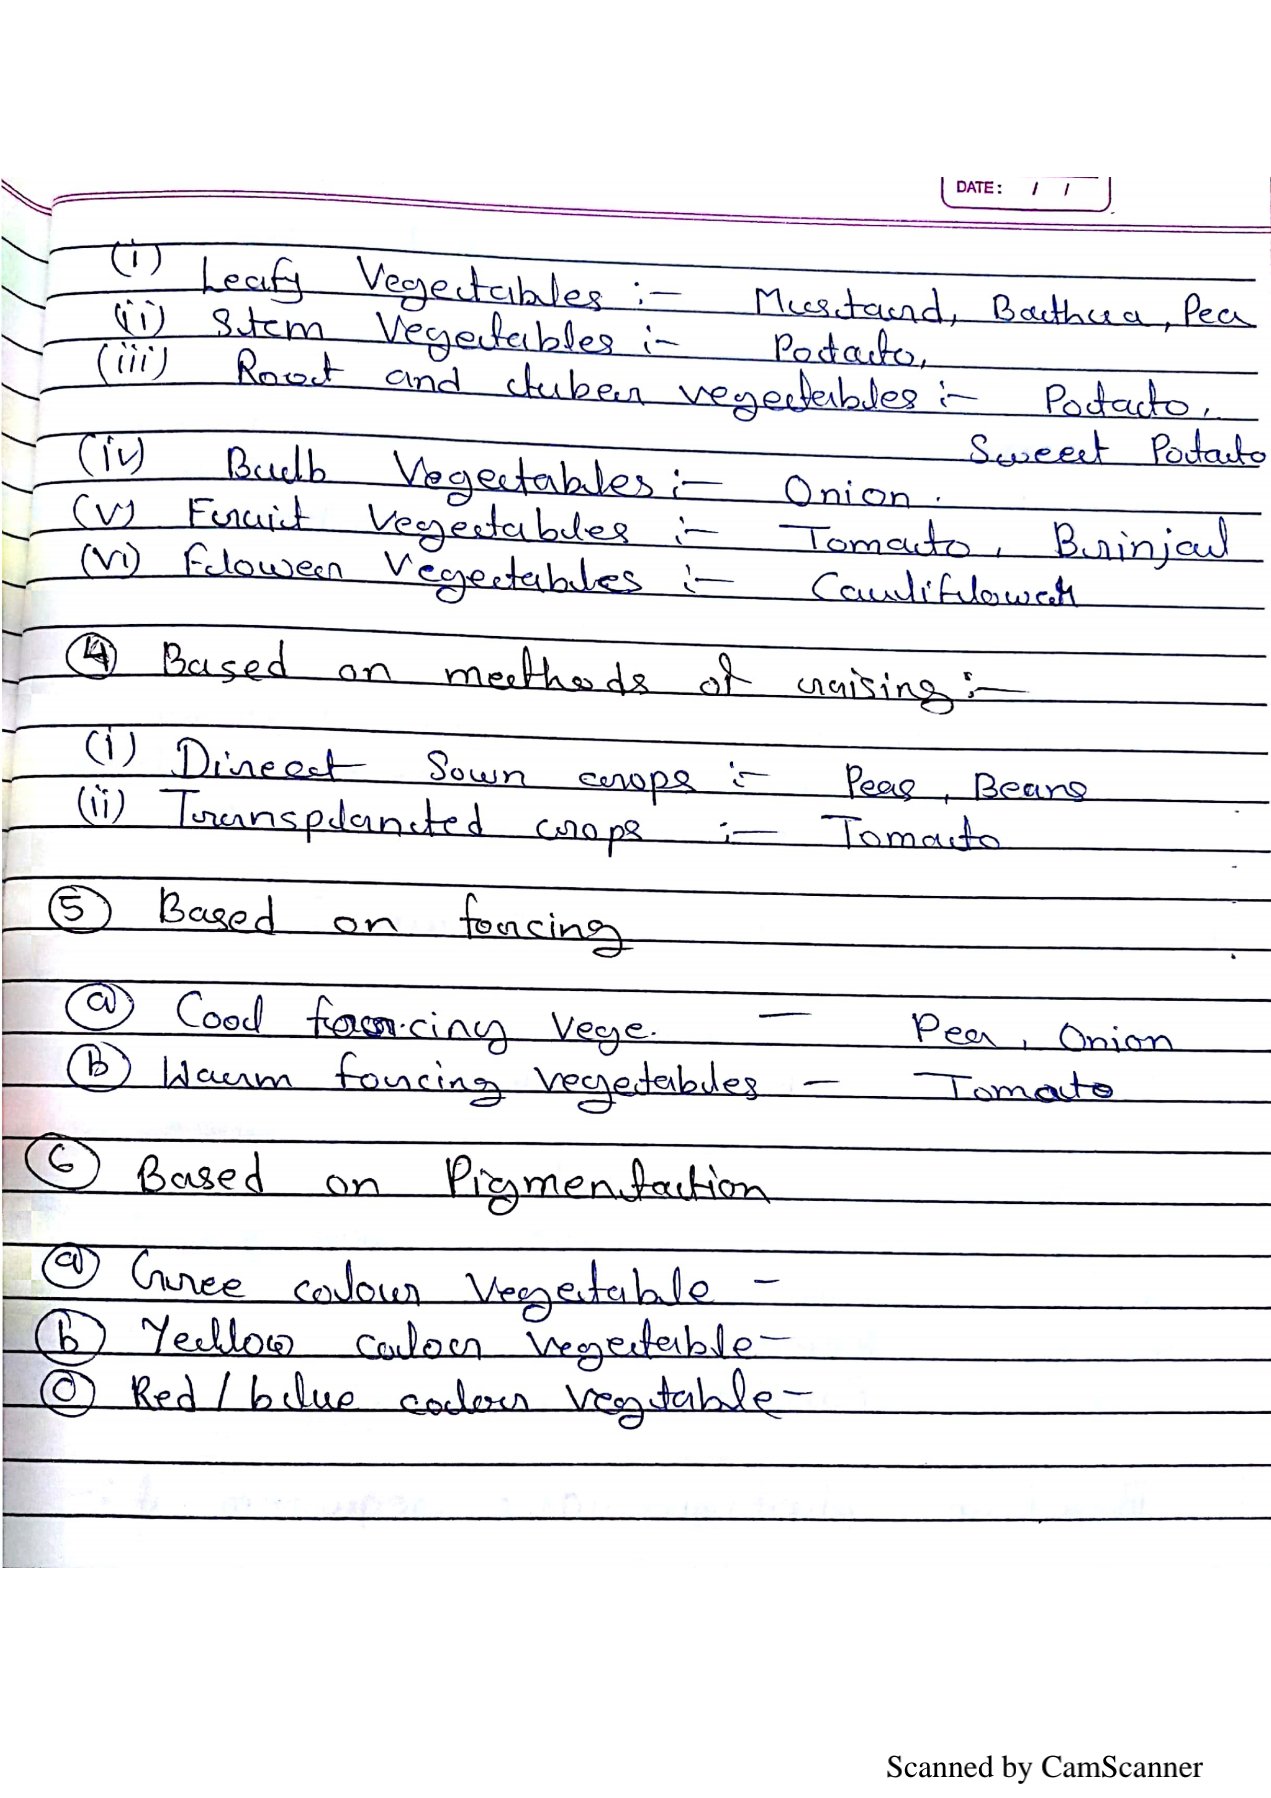 DATE: / /
(i) Leafy Vegetables :- Mustard, Bathua, Pea
(ii) Stem Vegetables :- Potato,
(iii) Root and tuber vegetables :- Potato,
Sweet Potato
(iv) Bulb Vegetables :- Onion.
(v) Fruit Vegetables :- Tomato, Brinjal
(vi) Flower Vegetables :- Cauliflower
④ Based on methods of raising :-
(i) Direct Sown crops :- Peas, Beans
(ii) Transplanted crops :- Tomato
⑤ Based on forcing
ⓐ Cool forcing Vege. - Pea, Onion
ⓑ Warm forcing vegetables - Tomato
⑥ Based on Pigmentation
ⓐ Gree colour Vegetable -
ⓑ Yellow colour vegetable -
ⓒ Red / blue colour vegtable -
Scanned by CamScanner